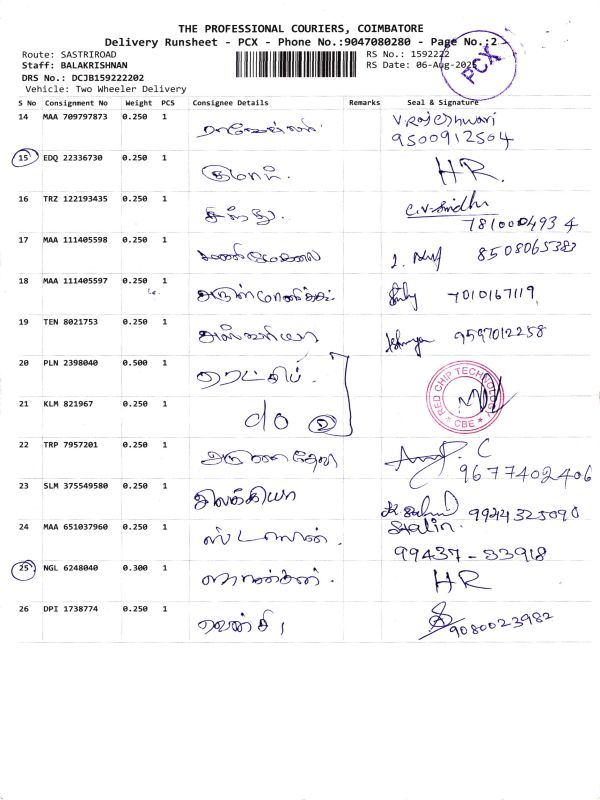 THE PROFESSIONAL COURIERS, COIMBATORE
Delivery Runsheet - PCX - Phone No.:9047080280 - Page No.:2
Route: SASTRIROAD
RS No.: 1592222
Staff: BALAKRISHNAN
RS Date: 06-Aug-2025
PCX
DRS No.: DCJB159222202
Vehicle: Two Wheeler Delivery
S No Consignment No Weight PCS Consignee Details Remarks Seal & Signature
14 MAA 709797873 0.250 1 V Rajeshwari
9500912504
15 EDQ 22336730 0.250 1 HR.
16 TRZ 122193435 0.250 1 சிந்து. C.V-Sindhu
7810004934
17 MAA 111405598 0.250 1 8508065383
18 MAA 111405597 0.250 1 7010167119
19 TEN 8021753 0.250 1 9597012258
20 PLN 2398040 0.500 1
RED CHIP TECHNOLOGY
* CBE *
21 KLM 821967 0.250 1 d/o D
22 TRP 7957201 0.250 1 9677402406
23 SLM 375549580 0.250 1 இலக்கியா 9944325090
24 MAA 651037960 0.250 1 ஸ்டாலின். Stalin.
99437-33918
25 NGL 6248040 0.300 1 HR
26 DPI 1738774 0.250 1 9080023982